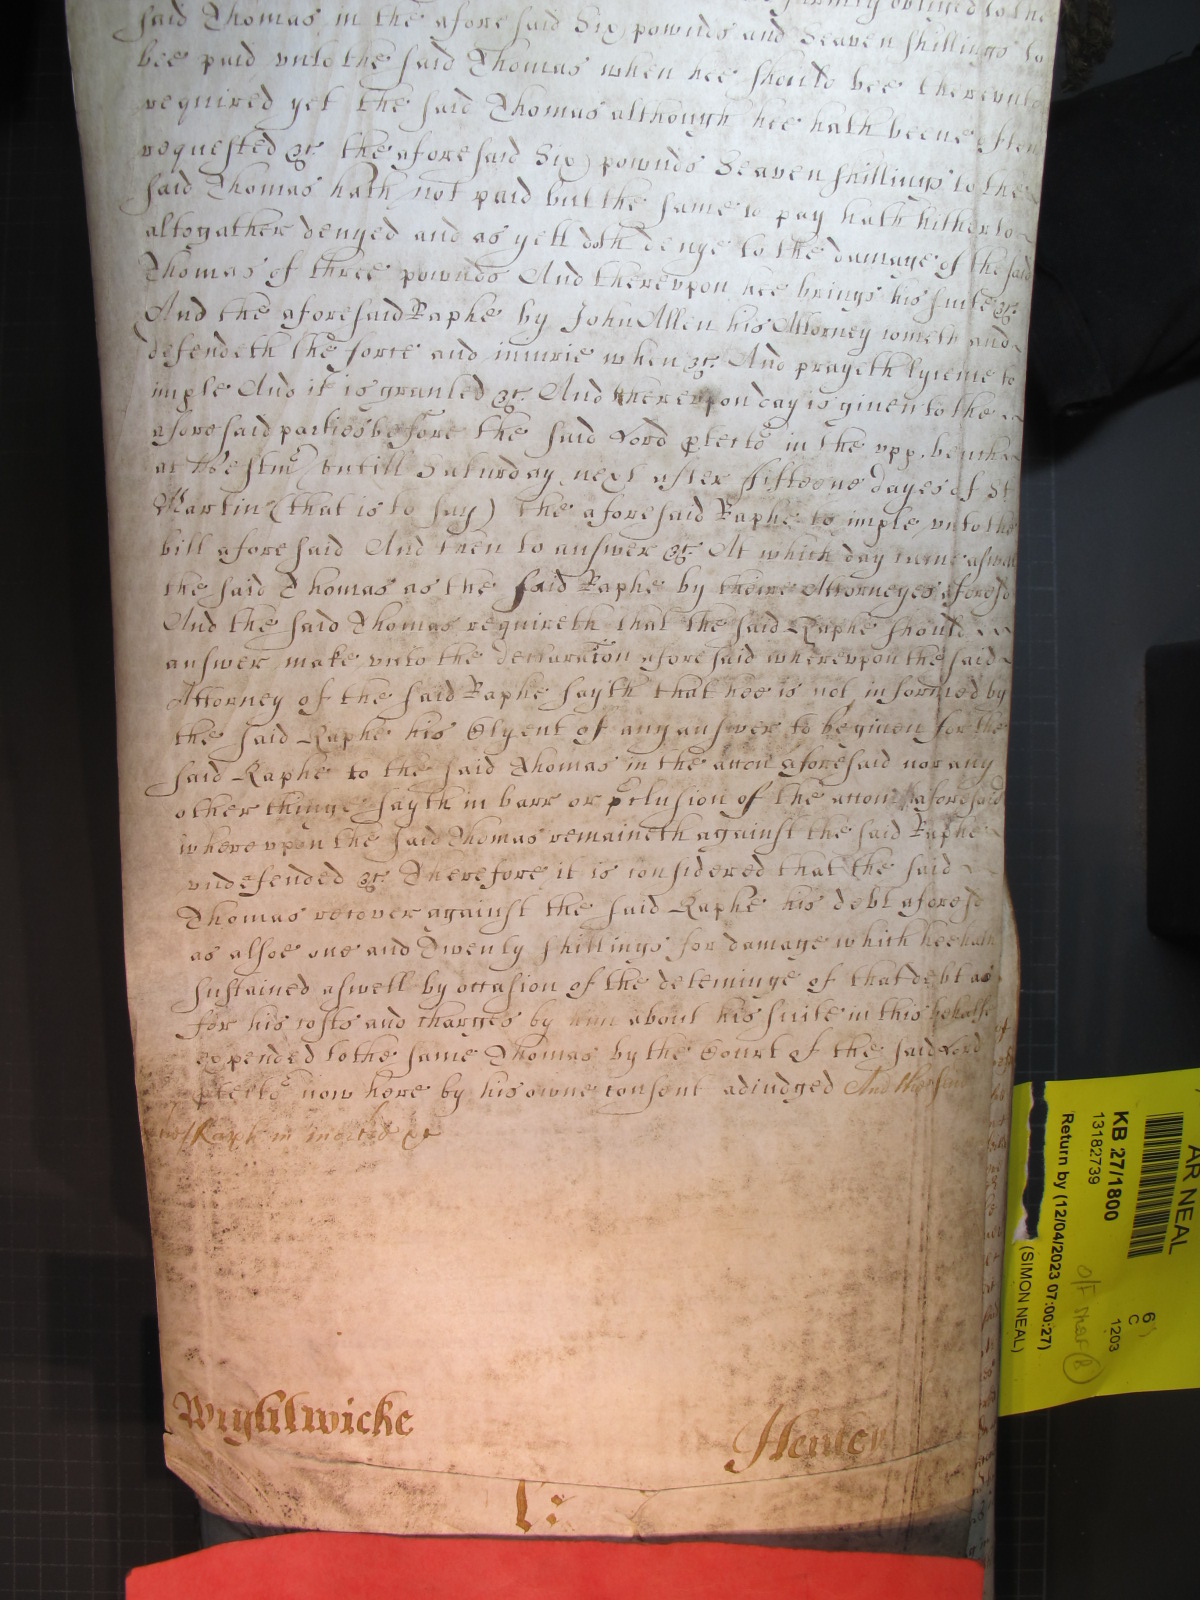 firmely obliged to the
said Thomas in the aforesaid Six pownds and Seaven shillings to
bee paid vnto the said Thomas when hee should bee therevnto
required yet the said Thomas although hee hath beene often
requested &c the aforesaid Six pownds Seaven shillings to the
said Thomas hath not paid but the same to pay hath hitherto
altogather denyed and as yett doth denye to the damage of the said
Thomas of three pownds And therevpon hee brings his suite &c
And the aforesaid Raphe by John Allen his Attorney cometh and
defendeth the force and iniurie when &c And prayeth lycence to
imple And it is granted &c And therevpon day is given to the
aforesaid parties before the said Lord ptector in the vpp. bench
at Westmr vntill Saturday next after fifteene dayes of St
Martin (that is to say) the aforesaid Raphe to imple vnto the
bill aforesaid And then to answer &c At which day came aswell
the said Thomas as the said Raphe by theire Attorneyes aforesd
And the said Thomas requireth that the said Raphe should
answer make vnto the declaration aforesaid wherevpon the said
Attorney of the said Raphe sayth that hee is not informed by
the said Raphe his Clyent of any answer to be given for the
said Raphe to the said Thomas in the accon aforesaid nor any
other thinge sayth in barr or pclusion of the accon aforesaid
wherevpon the said Thomas remaineth against the said Raphe
vndefended &c Therefore it is considered that the said
Thomas recover against the said Raphe his debt aforesd
as alsoe one and Twenty shillings for damage which hee hath
sustained aswell by occasion of the deteininge of that debt as
for his costs and charges by him about his suite in this behalfe
expended to the same Thomas by the Court of the said Lord
ptector now here by his owne consent adiudged And the said
Raph in &c
Wightwicke
Henley
1:
AR NEAL
KB 27/1800
13182739
Return by (12/04/2023 07:00:27)
(SIMON NEAL)
6
C
1203